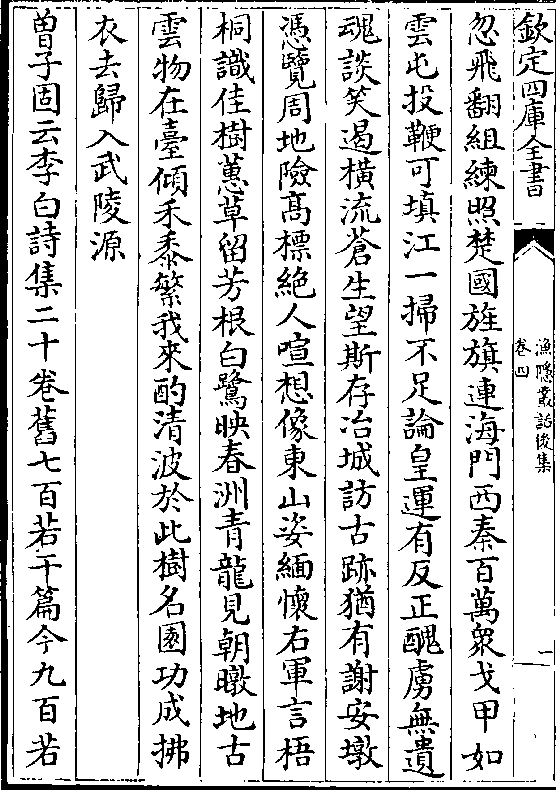 欽定四庫全書
漁隱叢話後集
卷四
一
忽飛翻組練照楚國旌旗連海門西秦百萬衆戈甲如
雲屯投鞭可填江一掃不足論皇運有反正醜虜無遺
魂談笑遏横流蒼生望斯存冶城訪古跡猶有謝安墩
憑覽周地險高標絶人喧想像東山姿緬懷右軍言梧
桐識佳樹蕙草留芳根白鷺映春洲青龍見朝暾地古
雲物在臺傾禾黍繁我來酌清波於此樹名園功成拂
衣去歸入武陵源
曾子固云李白詩集二十卷舊七百若干篇今九百若